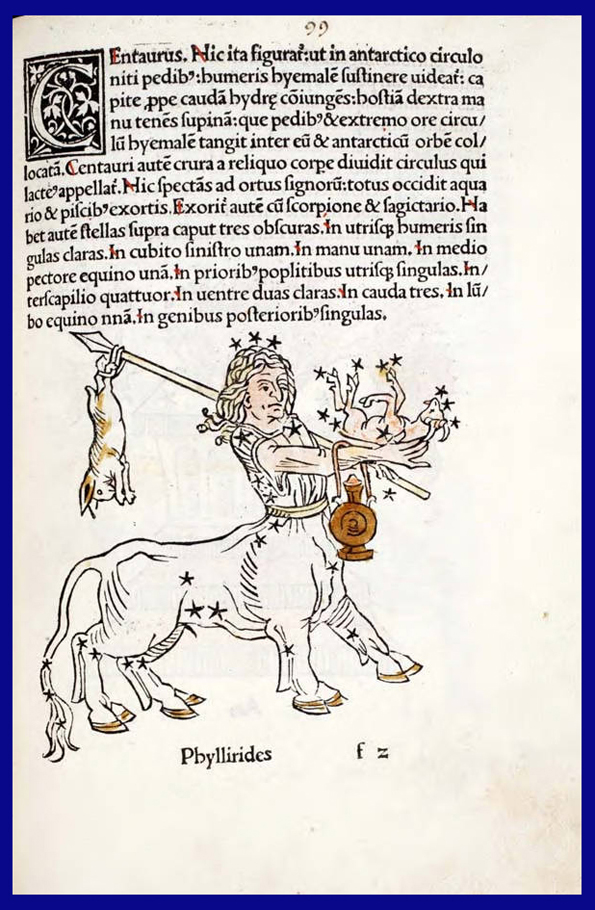 99
CEntaurus. Hic ita figurat᷑:ut in antarctico circulo
niti pedibꝰ:humeris hyemalē sustinere uideat᷑: ca
pite ,ppe caudā hydrę cōiungēs:hostiā dextra ma
nu tenēs supinā:que pedibꝰ&extremo ore circu/
lū hyemalē tangit inter eū & antarcticū orbē col/
locatā.Centauri autē crura a reliquo corpe diuidit circulus qui
lacteꝰappellat᷑.Hic spectās ad ortus signorū:totus occidit aqua
rio & piscibꝰexortis.Exorit᷑ autē cū scorpione & sagictario.Ha
bet autē stellas supra caput tres obscuras.In utrisqꝫ humeris sin
gulas claras.In cubito sinistro unam.In manu unam. In medio
pectore equino unā.In prioribꝰpoplitibus utrisqꝫ singulas.In/
terscapilio quattuor.In uentre duas claras.In cauda tres. In lū/
bo equino nnā.In genibus posterioribꝰsingulas.
Phyllirides f z